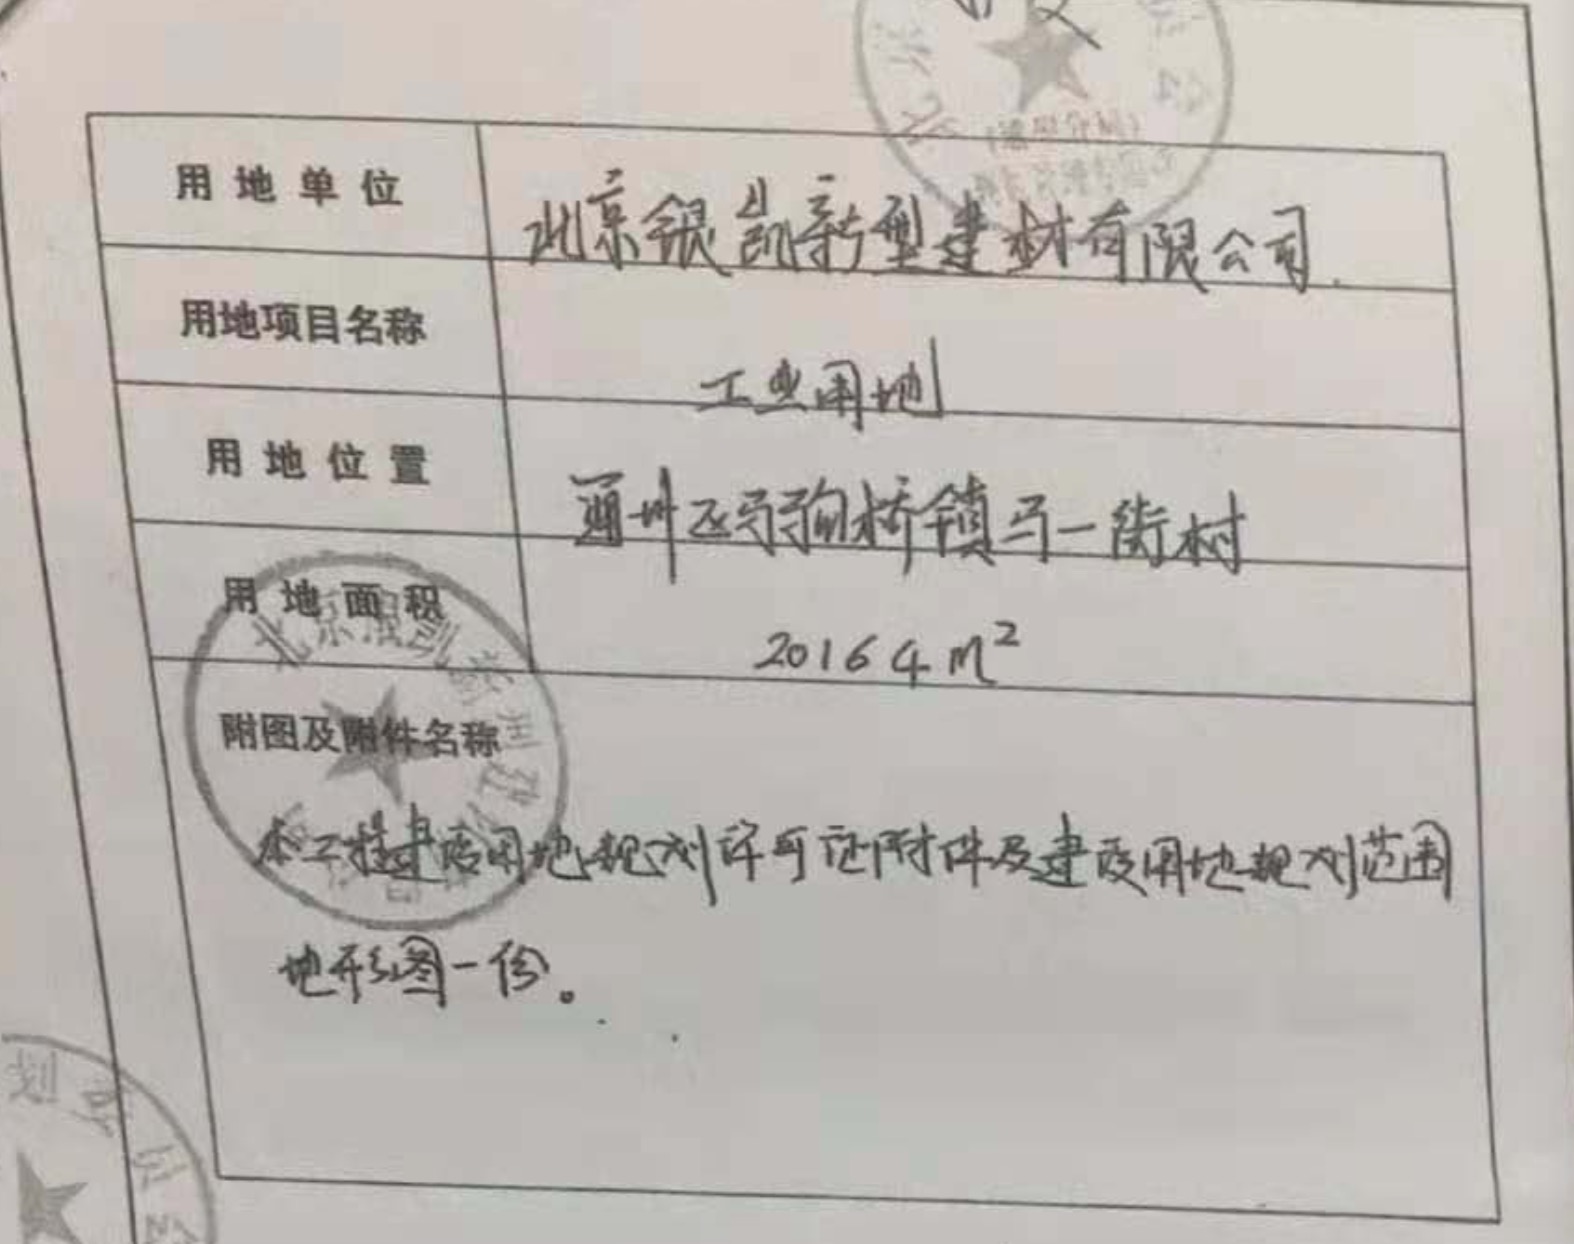 用地单位
北京银凯新型建材有限公司
用地项目名称
工业用地
用地位置
通州区马驹桥镇马一街村
用地面积
20164m²
附图及附件名称
本工程建设用地规划许可证附件及建设用地规划范围
地形图一份。
北京银凯新型建材
划委员会